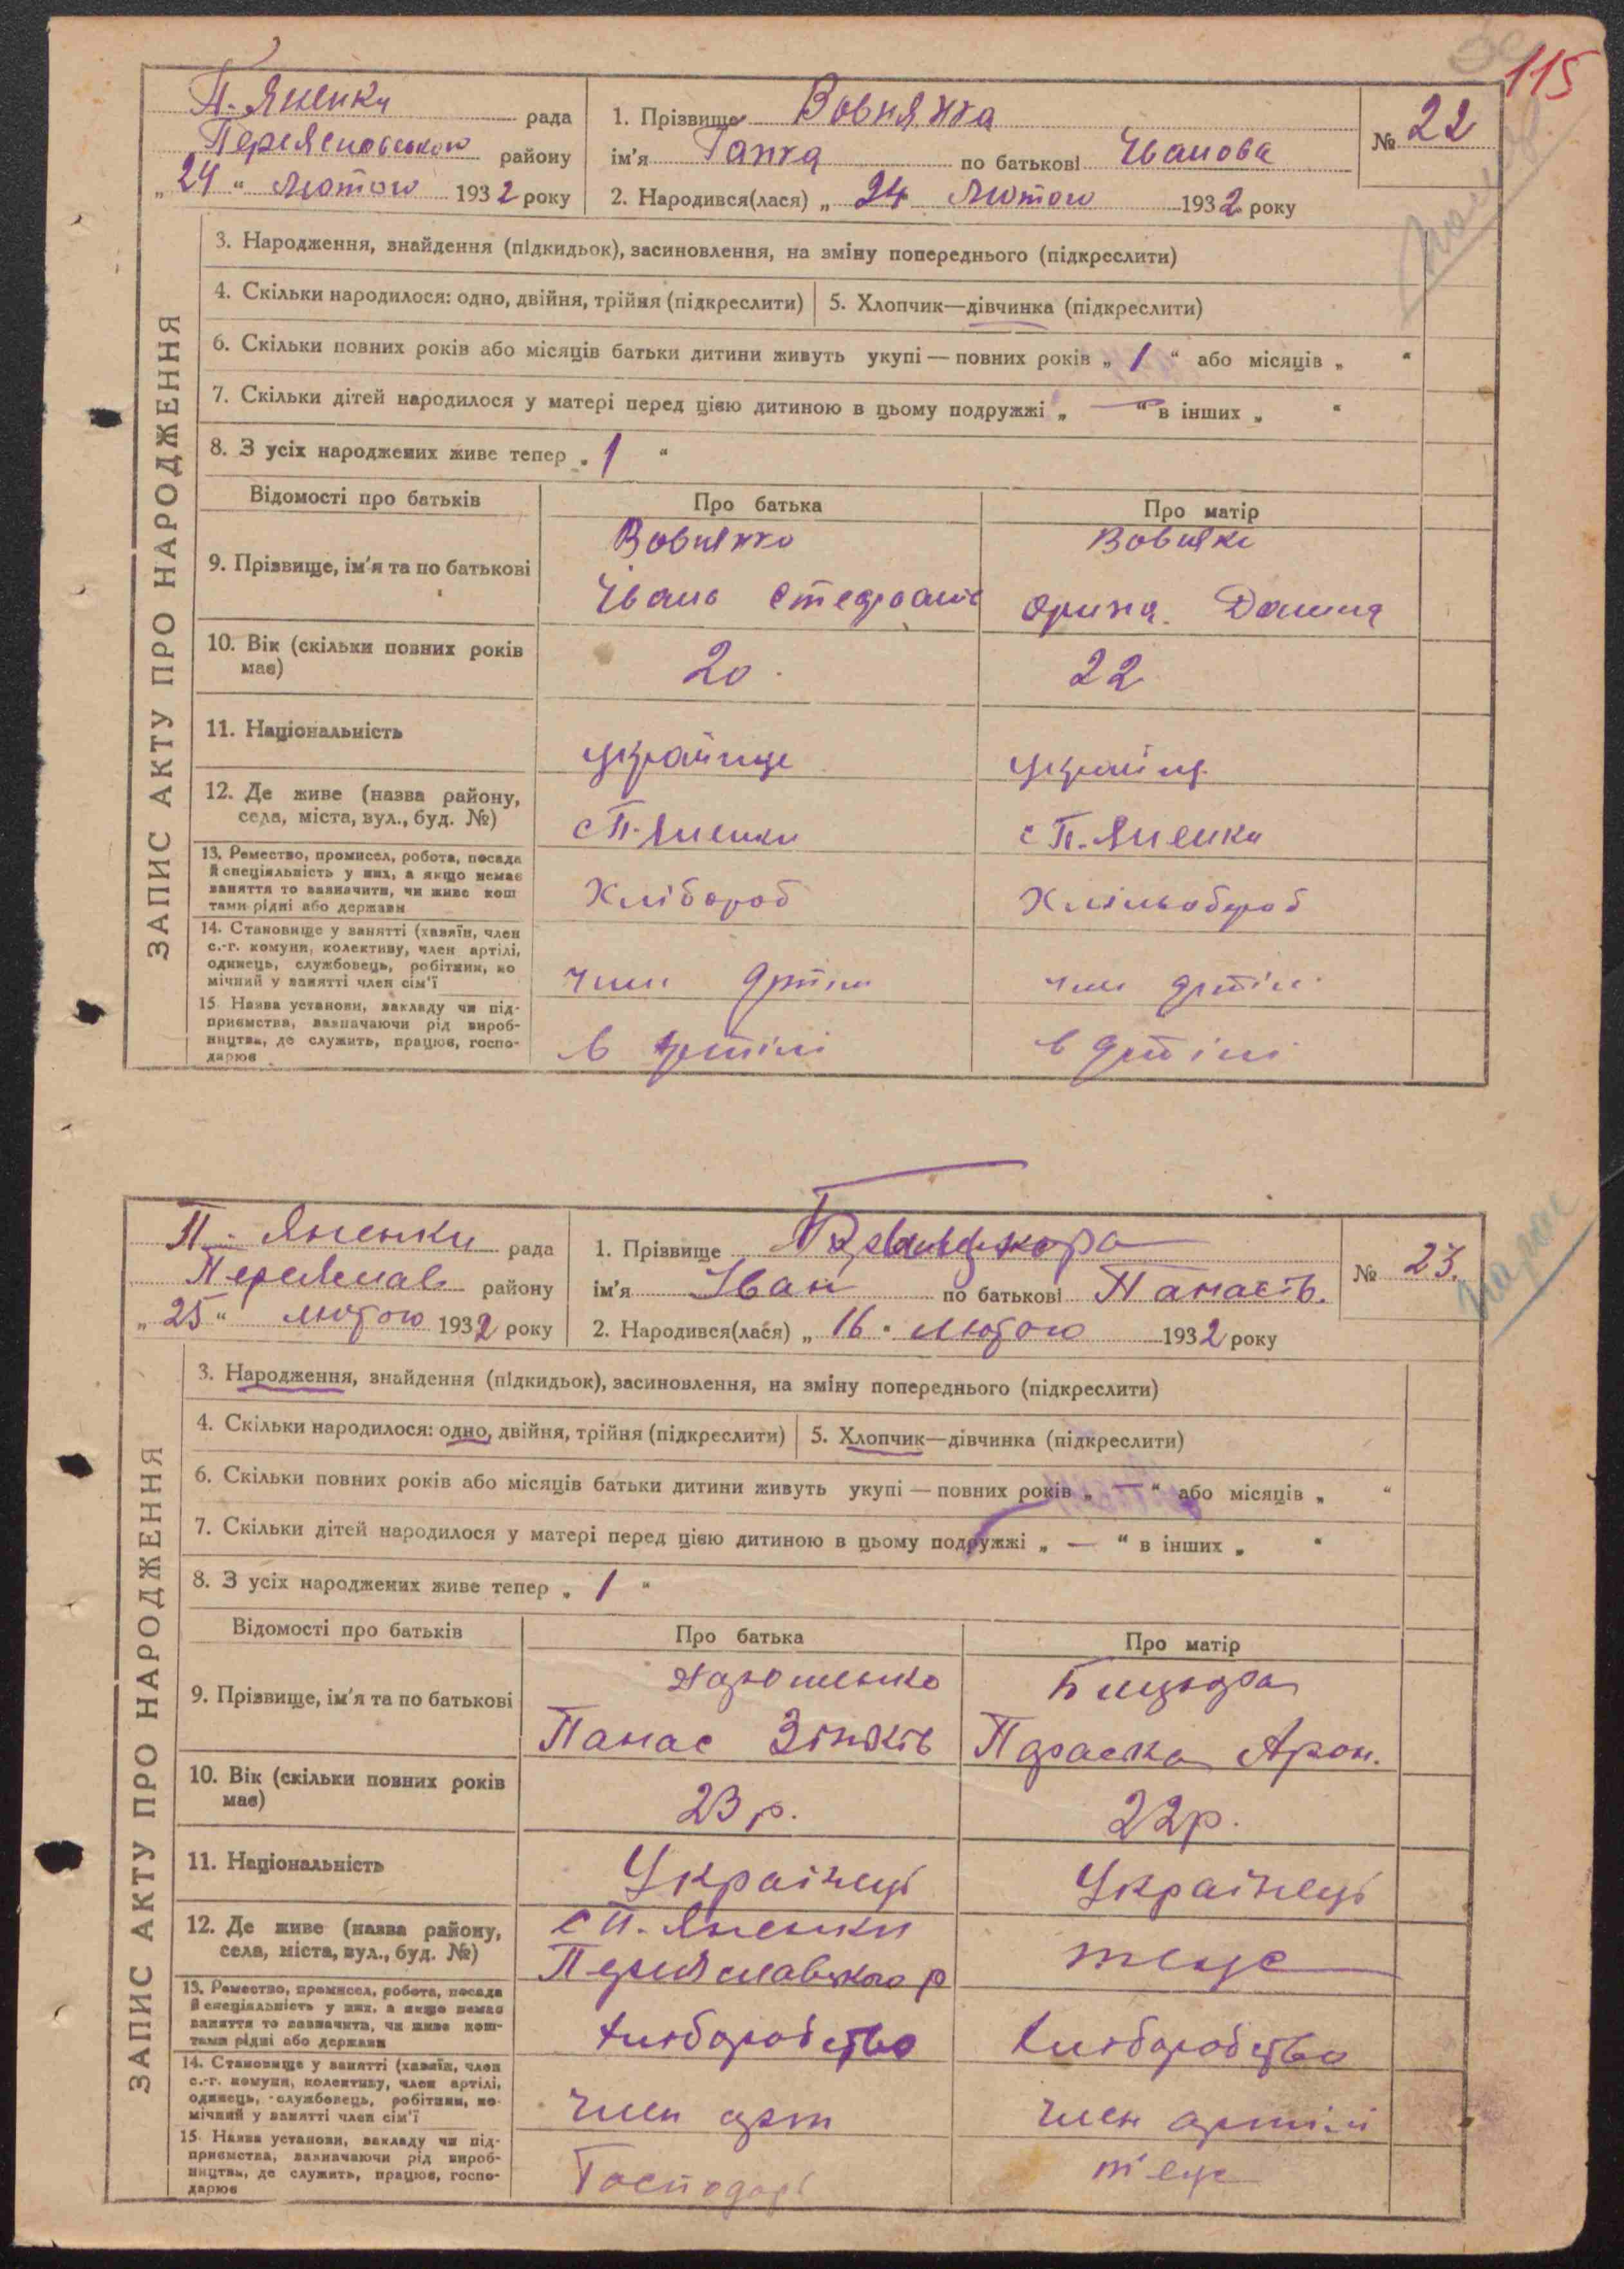 115
П. Яненки рада
Переяславського району
„ 24 “ Лютого 1932 року
1. Прізвище Вовнянка
ім'я Гапка по батькові Іванова
2. Народився(лася) „ 24 Лютого 1932 року
№ 22
ЗАПИС АКТУ ПРО НАРОДЖЕННЯ
3. Народження, знайдення (підкидьок), засиновлення, на зміну попереднього (підкреслити)
4. Скільки народилося: одно, двійня, трійня (підкреслити)
5. Хлопчик—дівчинка (підкреслити)
6. Скільки повних років або місяців батьки дитини живуть укупі — повних років „ 1 “ або місяців „ “
7. Скільки дітей народилося у матері перед цією дитиною в цьому подружжі „ — “ в інших „ “
8. З усіх народжених живе тепер „ 1 “
Відомості про батьків
Про батька
Про матір
9. Прізвище, ім'я та по батькові
Вовнянко
Орина
10. Вік (скільки повних років
має)
20
22
11. Національність
12. Де живе (назва району,
села, міста, вул., буд. №)
с П. Яненки
с П. Яненки
13. Ремество, промисел, робота, посада
й спеціяльність у них, а якщо немає
заняття то зазначити, чи живе кош
тами рідні або держави
Хлібороб
14. Становище у занятті (хазяїн, член
с.-г. комуни, колективу, член артілі,
одинець, службовець, робітник, по
мічний у занятті член сім'ї
член артілі
член артілі
15. Назва установи, закладу чи під-
приємства, зазначаючи рід вироб-
ництва, де служить, працює, госпо-
дарює
в артілі
в артілі
П. Яненки рада
Переяслав району
„ 25 “ лютого 1932 року
1. Прізвище
ім'я Іван по батькові Панасів.
2. Народився(лася) „ 16 “ лютого 1932 року
№ 23.
ЗАПИС АКТУ ПРО НАРОДЖЕННЯ
3. Народження, знайдення (підкидьок), засиновлення, на зміну попереднього (підкреслити)
4. Скільки народилося: одно, двійня, трійня (підкреслити)
5. Хлопчик—дівчинка (підкреслити)
6. Скільки повних років або місяців батьки дитини живуть укупі — повних років „ — “ або місяців „ “
7. Скільки дітей народилося у матері перед цією дитиною в цьому подружжі „ — “ в інших „ “
8. З усіх народжених живе тепер „ 1 “
Відомості про батьків
Про батька
Про матір
9. Прізвище, ім'я та по батькові
Панас Зіньків
Параска Арон.
10. Вік (скільки повних років
має)
23 р.
22 р.
11. Національність
Українець
Українець
12. Де живе (назва району,
села, міста, вул., буд. №)
с П. Яненки
Переяславського р
теще
13. Ремество, промисел, робота, посада
й спеціяльність у них, а якщо немає
заняття то зазначити, чи живе кош-
тами рідні або держави
Хліборобство
Хліборобство
14. Становище у занятті (хазяїн, член
с.-г. комуни, колективу, член артілі,
одинець, службовець, робітник, по
мічний у занятті член сім'ї
Член арт
Член артілі
15. Назва установи, закладу чи під-
приємства, зазначаючи рід вироб-
ництва, де служить, працює, госпо-
дарює